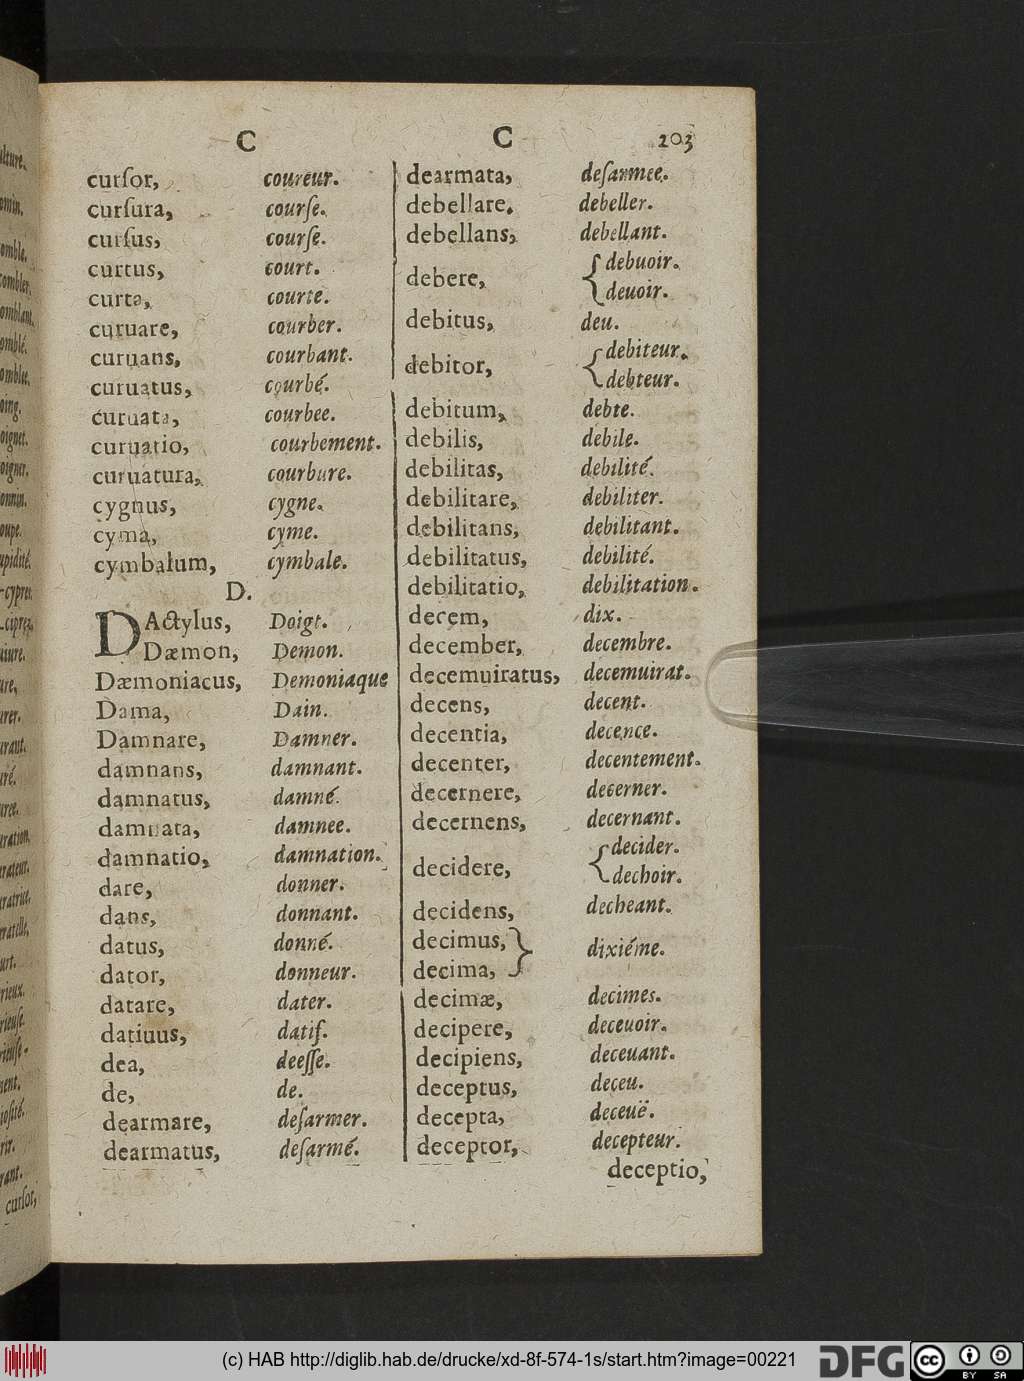 C C 203
curſor, coureur.
curſura, courſe.
curſus, courſe.
curtus, court.
curta, courte.
curuare, courber.
curuans, courbant.
curuatus, courbé.
curuata, courbee.
curuatio, courbement.
curuatura, courbure.
cygnus, cygne.
cyma, cyme.
cymbalum, cymbale.
D.
DActylus, Doigt.
Dæmon, Demon.
Dæmoniacus, Demoniaque
Dama, Dain.
Damnare, Damner.
damnans, damnant.
damnatus, damné.
damnata, damnee.
damnatio, damnation.
dare, donner.
dans, donnant.
datus, donné.
dator, donneur.
datare, dater.
datiuus, datif.
dea, deeſſe.
de, de.
dearmare, deſarmer.
dearmatus, deſarmé.
dearmata, deſarmee.
debellare, debeller.
debellans, debellant.
debere, { debuoir.
deuoir.
debitus, deu.
debitor, { debiteur.
debteur.
debitum, debte.
debilis, debile.
debilitas, debilité.
debilitare, debiliter.
debilitans, debilitant.
debilitatus, debilité.
debilitatio, debilitation.
decem, dix.
december, decembre.
decemuiratus, decemuirat.
decens, decent.
decentia, decence.
decenter, decentement.
decernere, decerner.
decernens, decernant.
decidere, { decider.
dechoir.
decidens, decheant.
decimus, } dixiéme.
decima,
decimæ, decimes.
decipere, deceuoir.
decipiens, deceuant.
deceptus, deceu.
decepta, deceuë.
deceptor, decepteur.
deceptio,
curſor,
(c) HAB http://diglib.hab.de/drucke/xd-8f-574-1s/start.htm?image=00221
DFG
cc BY SA